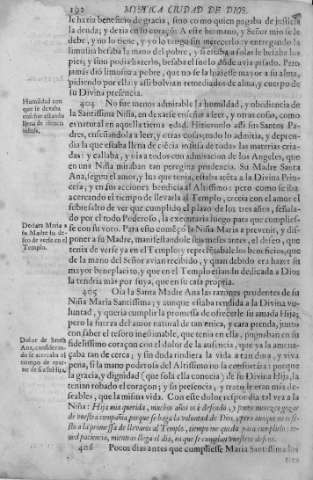 192 MYSTICA CIUDAD DE DIOS.
le hazia beneficio de gracia, sino como quien pagaba de justicia
la deuda; y dezia en su coraçõ: A este hermano, y Señor mio se le
debe, y no lo tiene, y yo lo tengo sin merecerlo: y entregando la
limosna besaba la mano del pobre, y si estaba a solas le besaba los
pies; y sino podia hazerlo, besaba el suelo donde avia pisado. Pero
jamàs diò limosna a pobre, que no se la hiziesse mayor a su alma,
pidiendo por ella; y assi bolvian remediados de alma, y cuerpo de
su Divina presencia.
Humildad con
que se dexaba
enseñar estando
llena de ciencia
infusa.
404 No fue menos admirable la humildad, y obediencia de
la Santissima Niña, en dexarse enseñar a leer, y otras cosas, como
es natural en aquella tierna edad. Hizieronlo assi sus Santos Padres,
enseñandola a leer, y otras cosas, y todo lo admitia, y deprendia
la que estaba llena de ciēcia infusa de todas las materias criadas:
y callaba, y oía a todos con admiracion de los Angeles, que
en una Niña miraban tan peregrina prudencia. Su Madre Santa
Ana, segun el amor, y luz que tenia, estaba atēta a la Divina Princesa,
y en sus acciones bendecia al Altissimo: pero como se iba
acercando el tiempo de llevarla al Templo, crecia con el amor el
sobresalto de ver que cumplido el plazo de los tres años, señalado
por el todo Poderoso, la executaria luego para que cumpliesse
con su voto.
Declara Maria a
su Madre su deseo
de verse en el
Templo.
Para esto començò la Niña Maria a prevenir, y disponer
a su Madre, manifestandole seis meses antes, el deseo, que
tenia de verse ya en el Templo: y representabale los beneficios, que
de la mano del Señor avian recibido, y quan debido era hazer su
mayor beneplacito, y que en el Templo estando dedicada a Dios
la tendria mas por suya, que en su casa propria.
405 Oìa la Santa Madre Ana las razones prudentes de su
Niña Maria Santissima; y aunque estaba rendida a la Divina voluntad,
y queria cumplir la promesa de ofrecerle su amada Hija;
pero la fuerza del amor natural de tan unica, y cara prenda, junto
con saber el tesoro inestimable, que tenia en ella, pugnaban en su
fidelissimo coraçon con el dolor de la ausencia, que ya la amenaçaba
tan de cerca;
Dolor de Santa
Ana, considerando
se acercaba el
tiempo de ausentarse
de su Hija.
y sin duda rindiera la vida a tan dura, y viva
pena, si la mano poderosa del Altissimo no la confortàra: porque
la gracia, y dignidad (que sola ella conocia) de su Divina Hija, la
tenian robado el coraçon; y su presencia, y trato le eran mas deseables,
que la misma vida. Con este dolor respondia tal vez a la
Niña: Hija mia querida, muchos años os è deseado, y pocos merezco gozar
de vuestra compañia, porque se haga la voluntad de Dios; pero aunque no resisto
a la promessa de llevaros al Templo, tiempo me queda para cumplirla: tened
paciencia, mientras llega el dia, en que se cumplan vuestros deseos.
406 Pocos dias antes que cumpliesse Maria Santissima los